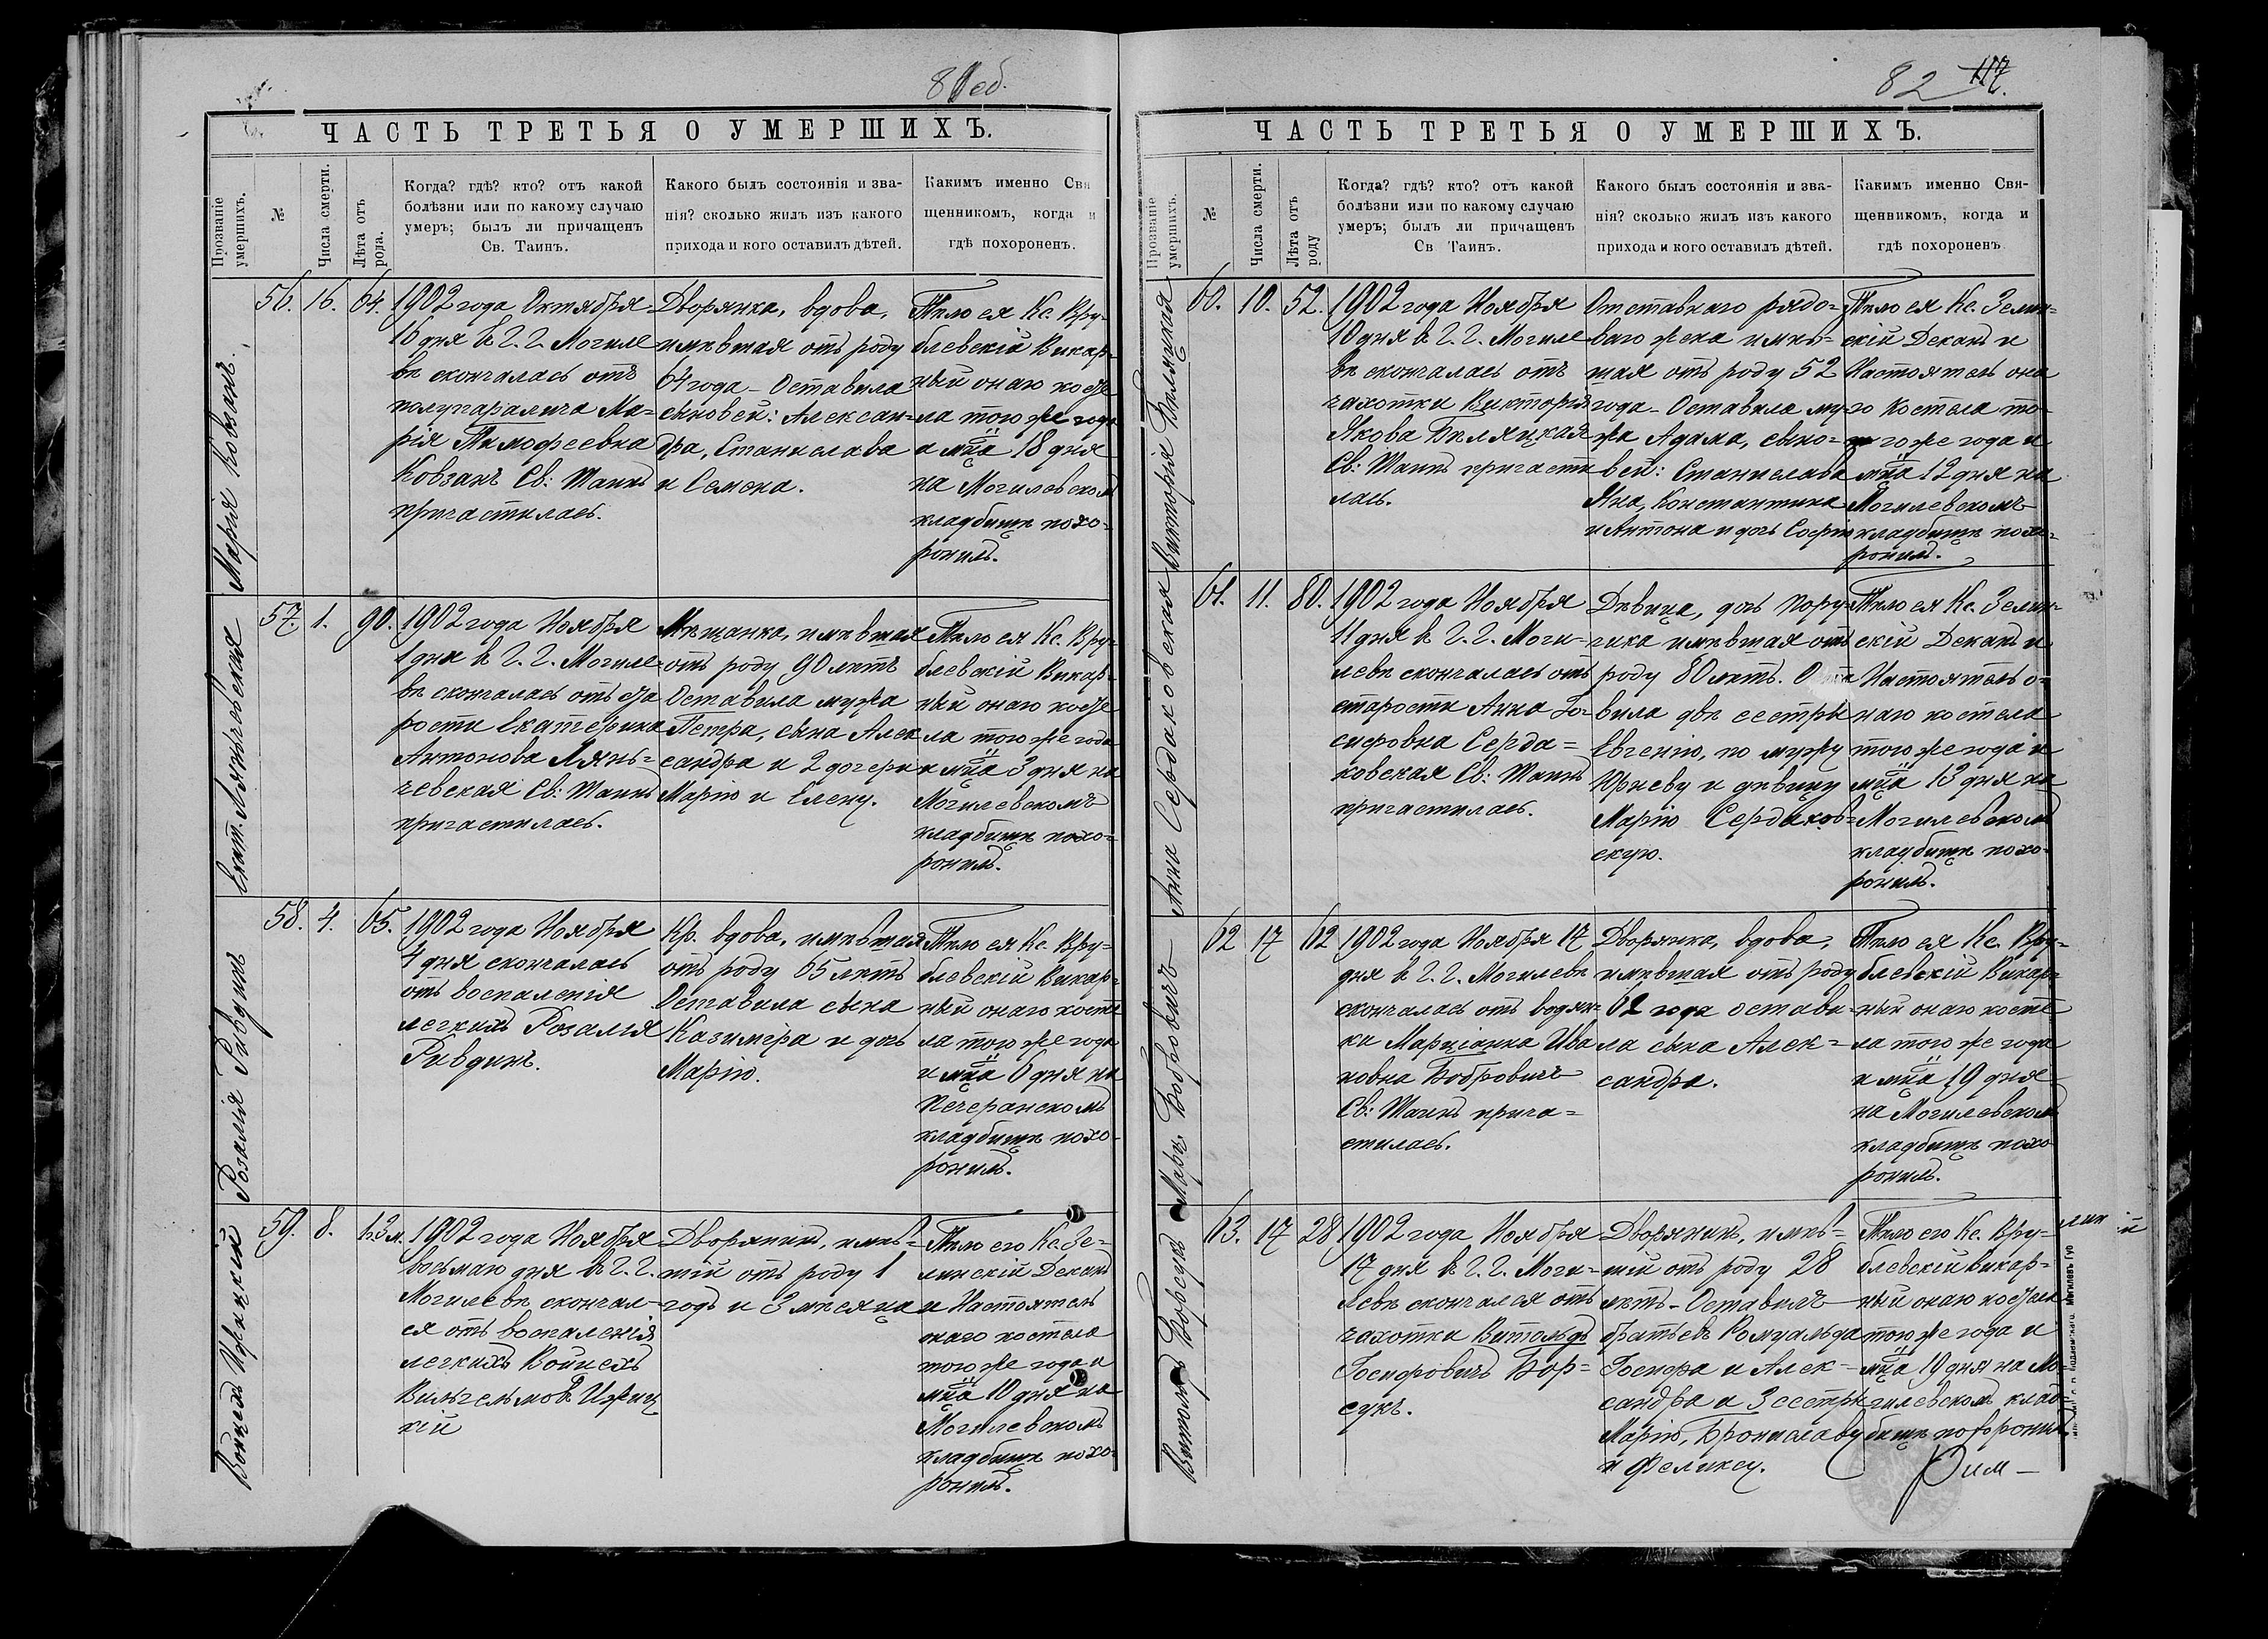 81 об.
ЧАСТЬ ТРЕТЬЯ О УМЕРШИХЪ.
Прозваніе умершихъ.
№
Числа смерти.
Лѣта отъ рода.
Когда? гдѣ? кто? отъ какой
болѣзни или по какому случаю
умеръ; былъ ли причащенъ
Св. Таинъ.
Какого былъ состоянія и зва-
нія? сколько жилъ изъ какого
прихода и кого оставилъ дѣтей.
Какимъ именно Свя
щенникомъ, когда и
гдѣ похороненъ.
Марія Ковзанъ.
56.
16.
64.
1902 года Октября
16 дня въ г. г. Могиле
вѣ скончалась отъ
полупаралича Ма=
рія Тимофеевна
Ковзанъ Св: Таинъ
причастилась.
Дворянка, вдова,
имѣвшая отъ роду
64 года - Оставила
сыновей: Алексан=
дра, Станислава
и Семена.
Тѣло ея Кс. Вру=
блевскій Викар=
ный онаго косте
ла того же года
и мца 18 дня
на Могилевскомъ
кладбищѣ похо=
ронилъ.
Екат. Лянчевская
57.
1.
90.
1902 года Ноября
1 дня въ г. г. Могиле=
вѣ скончалась отъ ста
рости Екатерина
Антонова Лянь=
чевская Св: Таинъ
причастилась.
Мѣщанка, имѣвшая
отъ роду 90 лѣтъ
Оставила мужа
Петра, сына Алек
сандра и 2 дочери
Марію и Елену.
Тѣло ея Кс. Вру=
блевскій Викар=
ный онаго косте
ла того же года
и мца 3 дня на
Могилевскомъ
кладбищѣ похо=
ронилъ.
Розалія Ривдинъ
58.
4.
65.
1902 года Ноября
4 дня скончалась
отъ воспаленія
легкихъ Розалія
Ривдинъ.
Кр. вдова, имѣвшая
отъ роду 65 лѣтъ
Оставила сына
Казиміра и дочь
Марію.
Тѣло ея Кс. Вру=
блевскій Викар=
ный онаго косте
ла того же года
и мца 6 дня на
Печеранскомъ
кладбищѣ похо=
ронилъ.
Войцехъ Ижицкій
59.
8.
1.3 м.
1902 года Ноября
восьмаго дня въ г. г.
Могилевѣ скончал=
ся отъ воспаленія
легкихъ Войцехъ
Вильгельмовъ Ижиц
кій
Дворянинъ, имѣв=
шій отъ роду 1
годъ и 3 мѣсяца
Тѣло его Кс. Зе=
линскій Деканъ
и Настоятель
онаго костела
того же года и
мца 10 дня на
Могилевскомъ
кладбищѣ похо=
ронилъ.
82
117.
ЧАСТЬ ТРЕТЬЯ О УМЕРШИХЪ.
Прозваніе умершихъ.
№
Числа смерти.
Лѣта отъ роду
Когда? гдѣ? кто? отъ какой
болѣзни или по какому случаю
умеръ; былъ ли причащенъ
Св Таинъ.
Какого былъ состоянія и зва-
нія? сколько жилъ изъ какого
прихода и кого оставилъ дѣтей.
Какимъ именно Свя-
щенникомъ, когда и
гдѣ похороненъ
Викторія Биляцкая
60.
10.
52.
1902 года Ноября
10 дня въ г. г. Могиле=
вѣ скончалась отъ
чахотки Викторія
Якова Биляцкая
Св: Таинъ причасти
лась.
Отставнаго рядо=
ваго жена имѣв=
шая отъ роду 52
года - Оставила му=
жа Адама, сыно=
вей: Станислава
Яна, Константина
и Антона и дочь Софію
Тѣло ея Кс. Зелин=
скій Деканъ и
Настоятель она
го костела то=
го же года и
мца 12 дня на
Могилевскомъ
кладбищѣ похо=
ронилъ.
Анна Сердаковская
61.
11.
80.
1902 года Ноября
11 дня въ г. г. Моги=
левѣ скончалась отъ
старости Анна Іо=
сифовна Серда=
ковская Св: Таинъ
причастилась.
Дѣвица, дочь пору=
чика имѣвшая отъ
роду 80 лѣтъ. Оста
вила двѣ сестры
Евгенію, по мужу
Юрневу и дѣвицу
Марію Сердаков=
скую.
Тѣло ея Кс. Зелин=
скій Деканъ и
Настоятель о=
наго костела
того же года и
мца 13 дня на
Могилевскомъ
кладбищѣ похо=
ронилъ.
Марц. Бобровичъ
62
17
62
1902 года Ноября 17
дня въ г. г. Могилевѣ
скончалась отъ водян=
ки Марціанна Ива
новна Бобровичъ
Св: Таинъ прича=
стилась.
Дворянка, вдова,
имѣвшая отъ роду
62 года остави=
ла сына Алек=
сандра.
Тѣло ея Кс. Вру=
блевскій Викар=
ный онаго косте
ла того же года
и мца 19 дня
на Могилевскомъ
кладбищѣ похо
ронилъ.
Витольдъ Борсукъ
63.
17
28
1902 года Ноября
17 дня въ г. г. Моги=
левѣ скончался отъ
чахотки Витольдъ
Іосифовичъ Бор=
сукъ.
Дворянинъ, имѣв=
шій отъ роду 28
лѣтъ - Оставилъ
братьевъ Ромуальда
Іосифа и Алек=
сандра и 3 сестры
Марію, Брониславу
и Феликсу.
Тѣло его Кс. Вру=
блевскій викар=
ный онаго костела
того же года и
мца 19 дня на Мо=
гилевскомъ клад=
бищѣ похоронилъ
Рим-